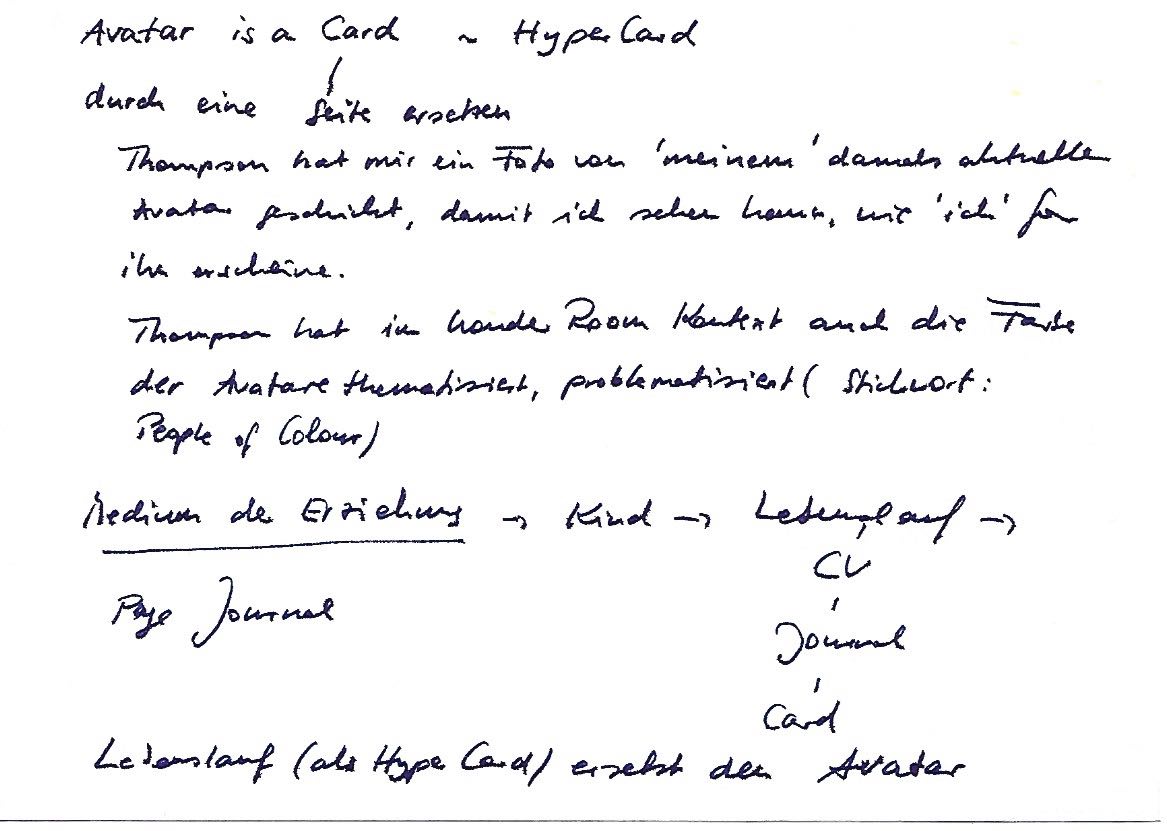 Avatar is a Card ~ HyperCard
durch eine Seite ersetzen
Thompson hat mir ein Foto von 'meinem' damals aktuellen
Avatar geschickt, damit ich sehen kann, wie 'ich' für
ihn erscheine.
Thompson hat im Room Kontext auch die Farbe
der Avatare thematisiert, problematisiert (Stichwort:
People of Colour)
Medium der Erziehung → Kind → Lebenslauf →
CV
Page Journal
Journal
Card
Lebenslauf (als HyperCard) ersetzt den Avatar